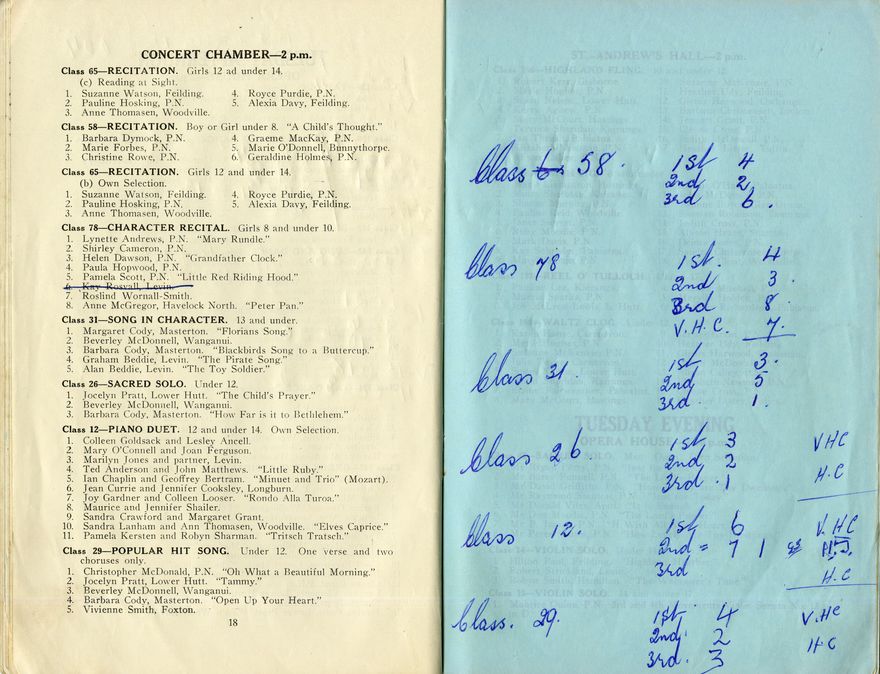 CONCERT CHAMBER—2 p.m.
Class 65—RECITATION. Girls 12 ad under 14.
(c) Reading at Sight.
1. Suzanne Watson, Feilding.
2. Pauline Hosking, P.N.
3. Anne Thomasen, Woodville.
4. Royce Purdie, P.N.
5. Alexia Davy, Feilding.
Class 58—RECITATION. Boy or Girl under 8. "A Child's Thought."
1. Barbara Dymock, P.N.
2. Marie Forbes, P.N.
3. Christine Rowe, P.N.
4. Graeme MacKay, P.N.
5. Marie O'Donnell, Bunnythorpe.
6. Geraldine Holmes, P.N.
Class 65—RECITATION. Girls 12 and under 14.
(b) Own Selection.
1. Suzanne Watson, Feilding.
2. Pauline Hosking, P.N.
3. Anne Thomasen, Woodville.
4. Royce Purdie, P.N.
5. Alexia Davy, Feilding.
Class 78—CHARACTER RECITAL. Girls 8 and under 10.
1. Lynette Andrews, P.N. "Mary Rundle."
2. Shirley Cameron, P.N.
3. Helen Dawson, P.N. "Grandfather Clock."
4. Paula Hopwood, P.N.
5. Pamela Scott, P.N. "Little Red Riding Hood."
6. Kay Rosvall, Levin.
7. Roslind Wornall-Smith.
8. Anne McGregor, Havelock North. "Peter Pan."
Class 31—SONG IN CHARACTER. 13 and under.
1. Margaret Cody, Masterton. "Florians Song."
2. Beverley McDonnell, Wanganui.
3. Barbara Cody, Masterton. "Blackbirds Song to a Buttercup."
4. Graham Beddie, Levin. "The Pirate Song."
5. Alan Beddie, Levin. "The Toy Soldier."
Class 26—SACRED SOLO. Under 12.
1. Jocelyn Pratt, Lower Hutt. "The Child's Prayer."
2. Beverley McDonnell, Wanganui.
3. Barbara Cody, Masterton. "How Far is it to Bethlehem."
Class 12—PIANO DUET. 12 and under 14. Own Selection.
1. Colleen Goldsack and Lesley Ancell.
2. Mary O'Connell and Joan Ferguson.
3. Marilyn Jones and partner, Levin.
4. Ted Anderson and John Matthews. "Little Ruby."
5. Ian Chaplin and Geoffrey Bertram. "Minuet and Trio" (Mozart).
6. Jean Currie and Jennifer Cooksley, Longburn.
7. Joy Gardner and Colleen Looser. "Rondo Alla Turoa."
8. Maurice and Jennifer Shailer.
9. Sandra Crawford and Margaret Grant.
10. Sandra Lanham and Ann Thomasen, Woodville. "Elves Caprice."
11. Pamela Kersten and Robyn Sharman. "Tritsch Tratsch."
Class 29—POPULAR HIT SONG. Under 12. One verse and two
choruses only.
1. Christopher McDonald, P.N. "Oh What a Beautiful Morning."
2. Jocelyn Pratt, Lower Hutt. "Tammy."
3. Beverley McDonnell, Wanganui.
4. Barbara Cody, Masterton. "Open Up Your Heart."
5. Vivienne Smith, Foxton.
18
Class 58. 1st 4
2nd 2
3rd 6.
Class 78 1st. 4
2nd 3.
3rd 8.
V.H.C. 7.
Class 31. 1st 3.
2nd 5
3rd 1.
Class 26. 1st 3 VHC
2nd 2
3rd . 1 H.C
Class 12. 1st 6 V.HC
2nd = 7 1
3rd H.C
Class. 29. 1st. 4 V.HC
2nd. 2 H C
3rd. 3